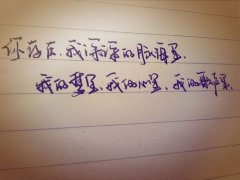 你存在，我深深的脑海里，
我的梦里，我的心里，我的歌声里